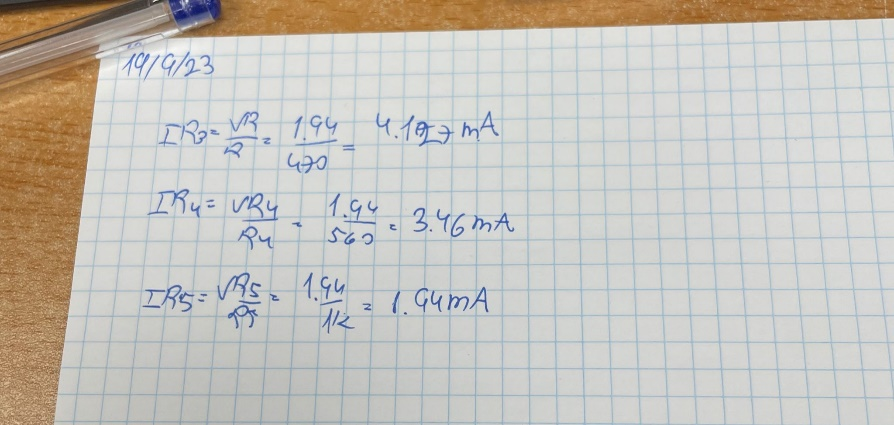 19/9/23
IR3 = VR/R = 1.94/470 = 4.127 mA
IR4 = VR4/R4 = 1.94/560 = 3.46 mA
IR5 = VR5/R5 = 1.94/1k = 1.94 mA